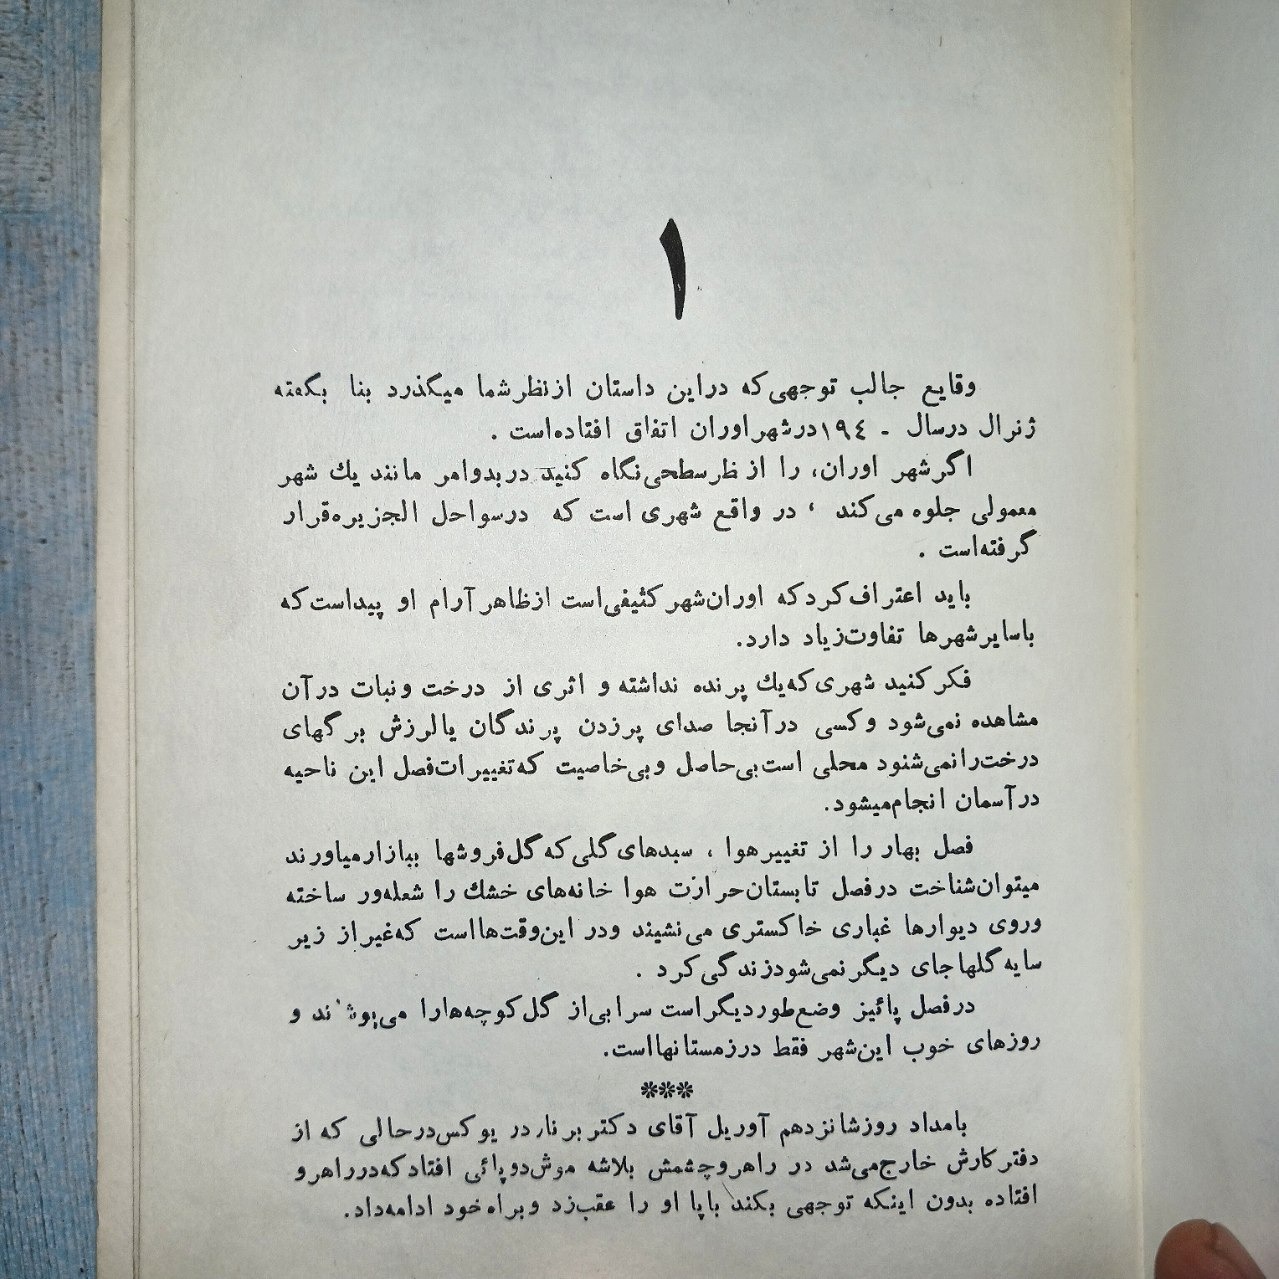 ۱
وقایع جالب توجهی‌که دراین داستان ازنظرشما میگذرد بنا بگفته
ژنرال درسال ـ ۱۹۴درشهراوران اتفاق افتاده‌است .
اگرشهر اوران، را از ظرسطحی‌نگاه کنید دربدوامر مانند یك شهر
معمولی جلوه می‌کند ، در واقع شهری است که درسواحل الجزیره‌قرار
گرفته‌است .
باید اعتراف‌کردکه اوران‌شهرکثیفی‌است ازظاهرآرام او پیداست‌که
باسایرشهرها تفاوت‌زیاد دارد.
فکرکنید شهری‌که‌یك پرنده نداشته و اثری از درخت ونبات درآن
مشاهده نمی‌شود وکسی درآنجا صدای پرزدن پرندگان یالرزش برگهای
درخت‌رانمی‌شنود محلی است‌بی‌حاصل وبی‌خاصیت که‌تغییرات‌فصل این ناحیه
درآسمان انجام‌میشود.
فصل بهار را از تغییرهوا ، سبدهای‌گلی‌که‌گل‌فروشها ببازارمیاورند
میتوان‌شناخت درفصل تابستان‌حرارت هوا خانه‌های خشك را شعله‌ور ساخته
وروی دیوارها غباری خاکستری می‌نشیند ودر این‌وقت‌هااست که‌غیراز زیر
سایه‌گلهاجای دیگرنمی‌شودزندگی‌کرد .
درفصل پائیز وضع‌طوردیگراست سرابی‌از گل‌کوچه‌هارا می‌پوشاند و
روزهای خوب این‌شهر فقط درزمستانهااست.
***
بامداد روزشانزدهم آوریل آقای دکتربرنارد ریوکس‌درحالی که از
دفترکارش خارج‌می‌شد در راهروچشمش بلاشه موش‌دوپائی افتادکه‌درراهرو
افتاده بدون اینکه توجهی بکند باپا او را عقب‌زد وبراه‌خود ادامه‌داد.